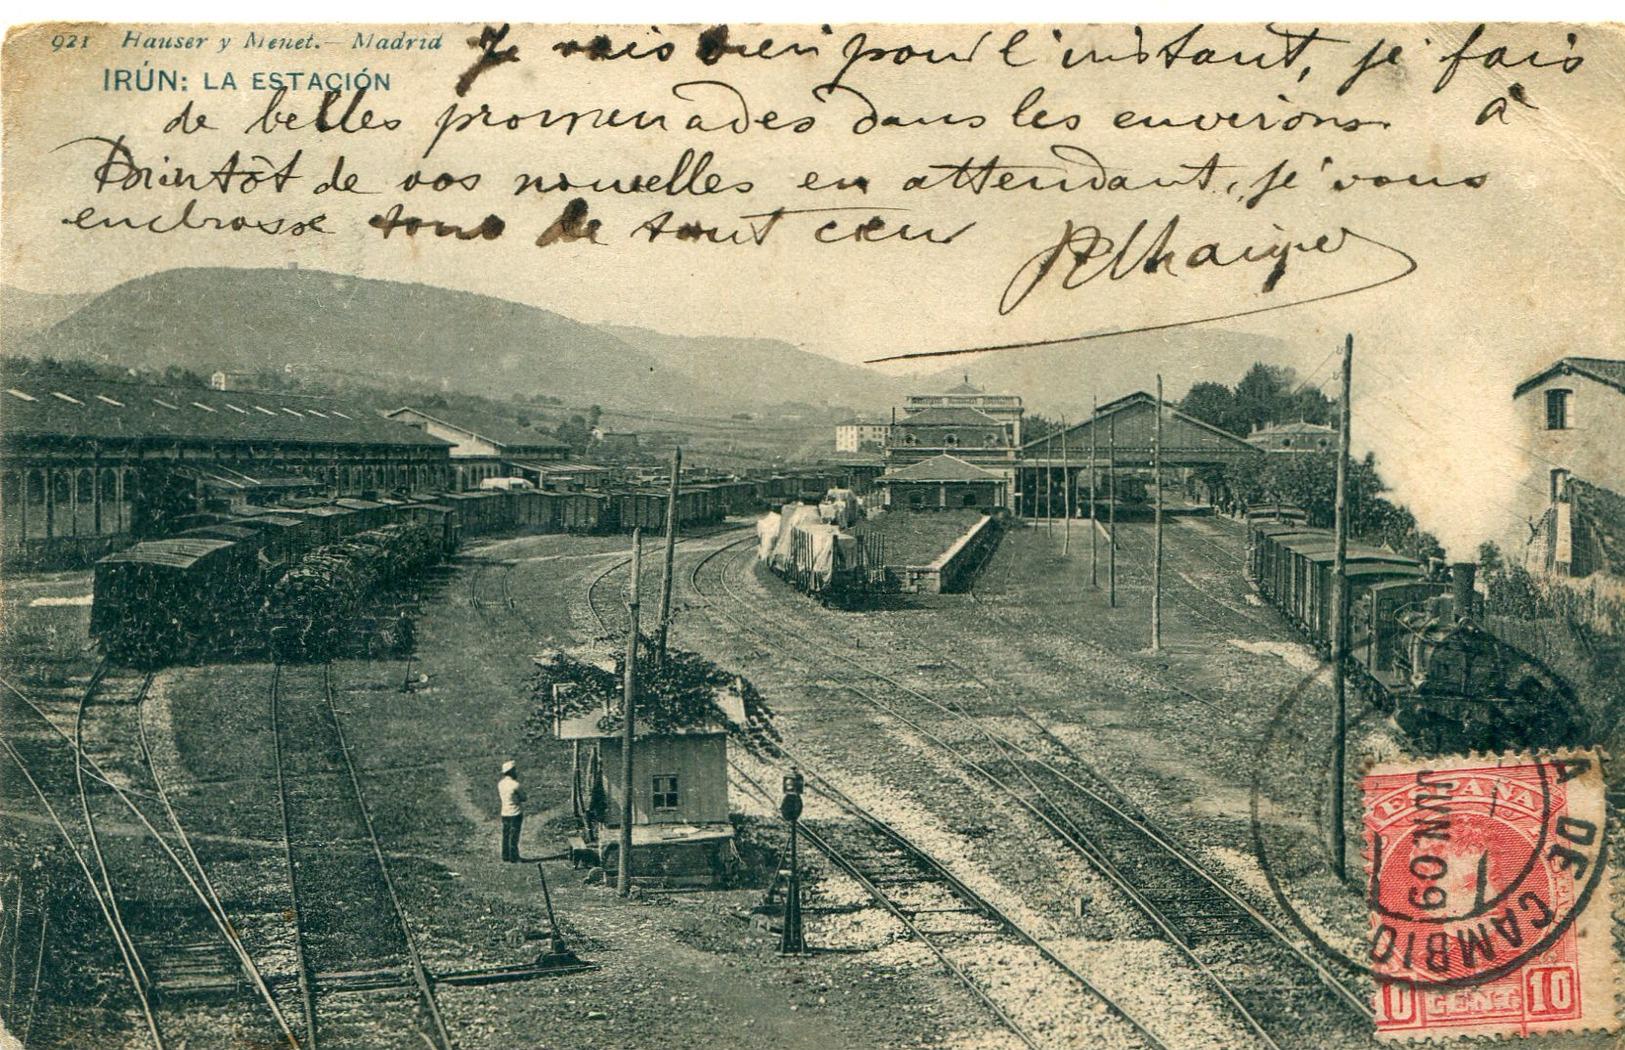 921 Hauser y Menet.— Madrid
IRÚN: LA ESTACIÓN
Je vais bien pour l'instant, je fais
de belles promenades dans les environs. à
Bientôt de vos nouvelles en attendant, je vous
embrasse tous de tout cœur
ESPAÑA
JUN.09
A DE CAMBIO
10 CENT 10